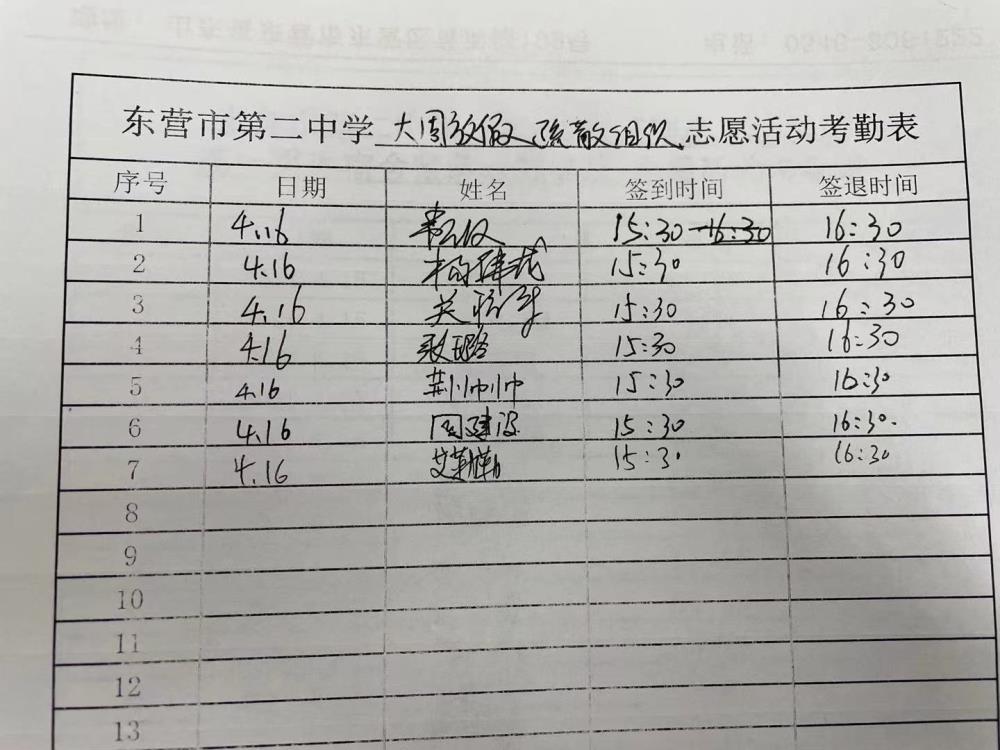 东营市第二中学 大周放假疏散组织 志愿活动考勤表
序号 日期 姓名 签到时间 签退时间
1 4.16 15:30 16:30 16:30
2 4.16 15:30 16:30
3 4.16 15:30 16:30
4 4.16 张璐 15:30 16:30
5 4.16 荆帅帅 15:30 16:30
6 4.16 周建波 15:30 16:30.
7 4.16 15:30 16:30
8
9
10
11
12
13